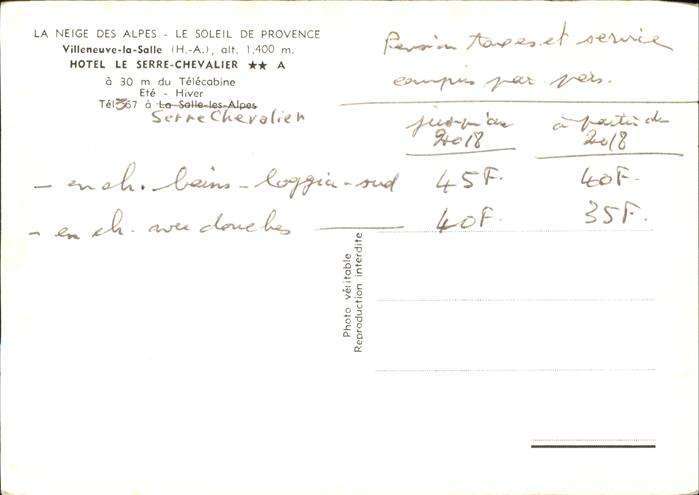 LA NEIGE DES ALPES - LE SOLEIL DE PROVENCE
Villeneuve-la-Salle (H.-A.), alt. 1,400 m.
HOTEL LE SERRE-CHEVALIER ★★ A
à 30 m du Télécabine
Eté - Hiver
Tél. 367 à La Salle-les-Alpes
Serre Chevalier
Pension taxes et service
compris par pers.
jusqu'au 20/8
à partir du 20/8
- en ch. bains - loggia - sud 45F. 40F.
- en ch. avec douches 40F 35F.
Photo véritable
Reproduction interdite